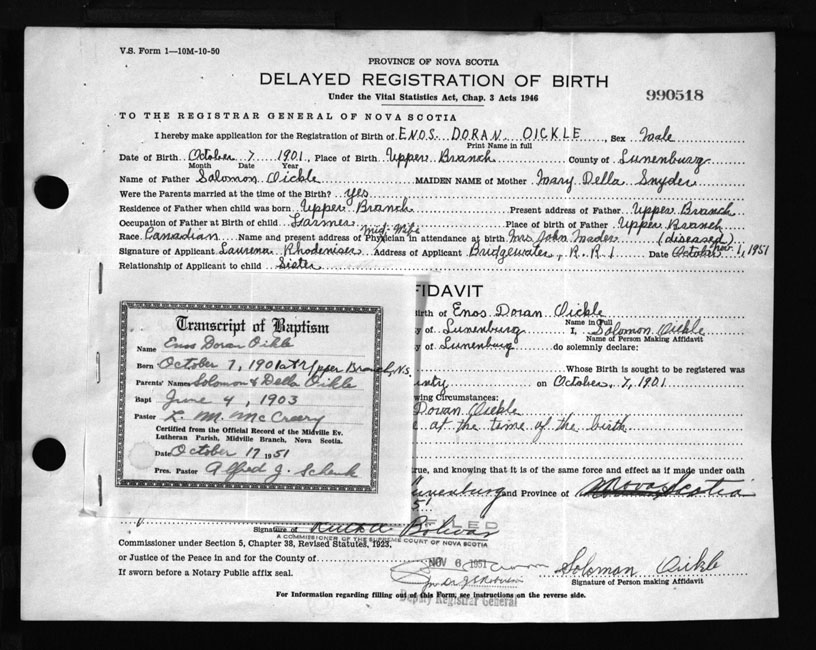 V.S. Form 1—10M-10-50
PROVINCE OF NOVA SCOTIA
DELAYED REGISTRATION OF BIRTH
Under the Vital Statistics Act, Chap. 3 Acts 1946
990518
TO THE REGISTRAR GENERAL OF NOVA SCOTIA
I hereby make application for the Registration of Birth of ENOS DORAN OICKLE Sex Male
Print Name in full
Date of Birth October 7 1901 Place of Birth Upper Branch County of Lunenburg
Month Date Year
Name of Father Solomon Oickle MAIDEN NAME of Mother Mary Della Snyder
Were the Parents married at the time of the Birth? yes
Residence of Father when child was born Upper Branch Present address of Father Upper Branch
Occupation of Father at Birth of child Farmer Place of birth of Father Upper Branch
Mid-Wife
Race Canadian Name and present address of Physician in attendance at birth Mrs John Mader (diseased)
Signature of Applicant Laurena Rhodeniser Address of Applicant Bridgewater, R.R.1 Date October 1, 1951
Relationship of Applicant to child Sister
FIDAVIT
Birth of Enos Doran Oickle
Name in Full
y of Lunenburg I, Solomon Oickle
Name of Person Making Affidavit
y of Lunenburg do solemnly declare:
Whose Birth is sought to be registered was
unty on October, 7, 1901
wing Circumstances:
Doran Oickle
e at the time of the birth
true, and knowing that it is of the same force and effect as if made under oath
Lunenburg and Province of Nova Scotia
51
Transcript of Baptism
Name Enos Doran Oikle
Born October 7, 1901 at Upper Branch, N.S.
Parents' Names Solomon & Della Oikle
Bapt June 4, 1903
Pastor L. M. McCreery
Certified from the Official Record of the Midville Ev.
Lutheran Parish, Midville Branch, Nova Scotia.
Date October 17 1951
Pres. Pastor Alfred J. Schenk
FILED
Signature of Bolivar
A COMMISSIONER OF THE SUPREME COURT OF NOVA SCOTIA
Commissioner under Section 5, Chapter 38, Revised Statutes, 1923.
or Justice of the Peace in and for the County of
NOV 6 1951
If sworn before a Notary Public affix seal.
Solomon Oickle
Signature of Person making Affidavit
For Information regarding filling out of this Form, see instructions on the reverse side.
Deputy Registrar General